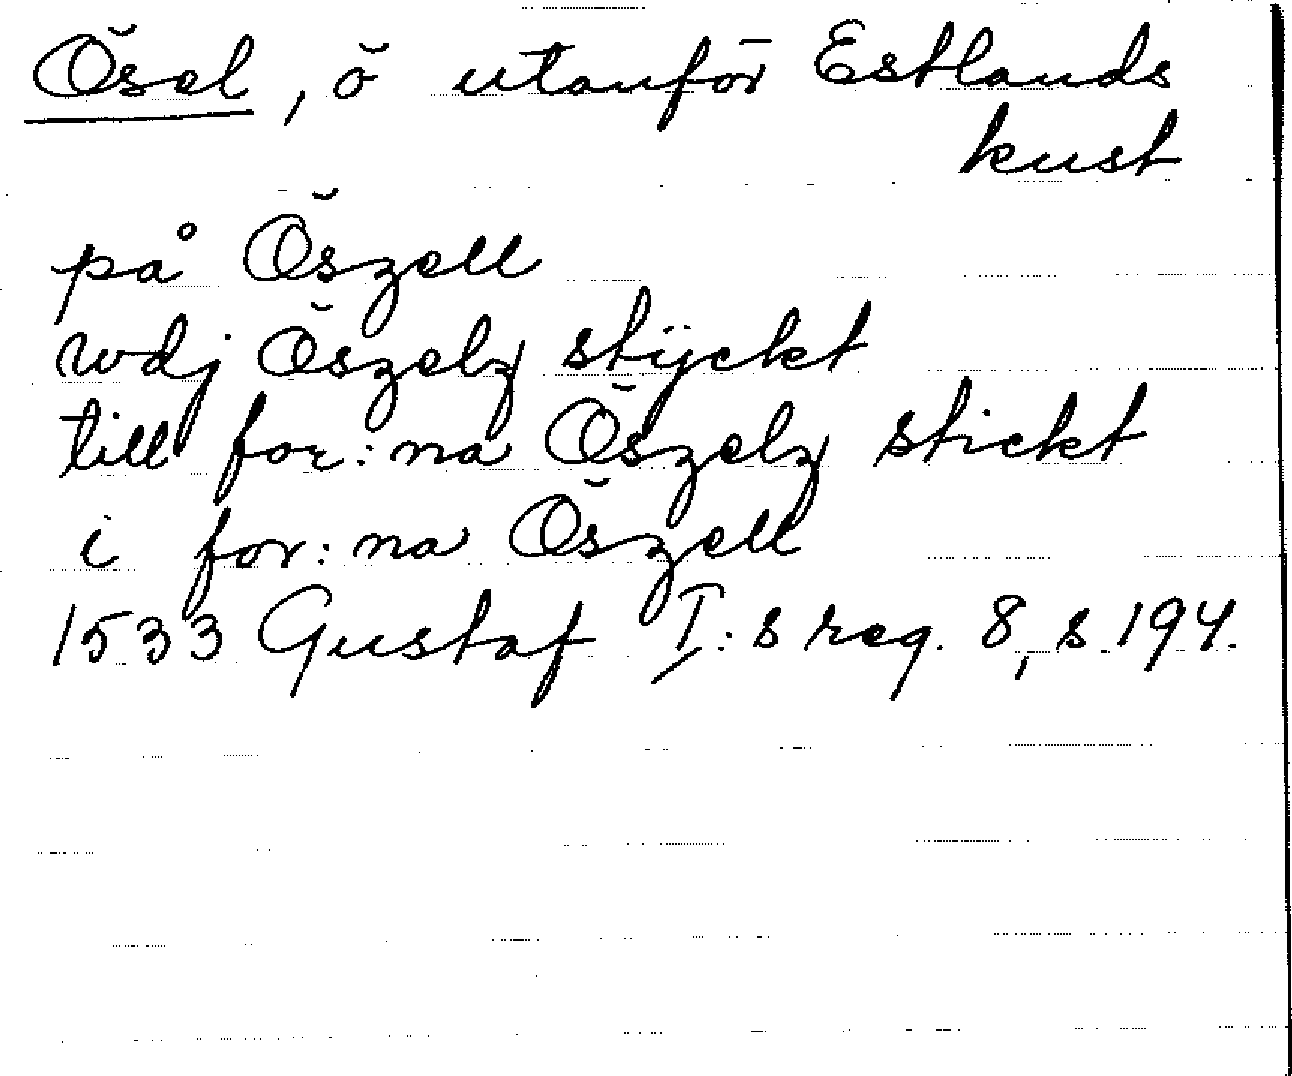 Ösel, ö utanför Estlands
kust
på Öszell
wdj Öszelz stÿckt
till for:na Öszelz stickt
i for:na Öszell
1533 Gustaf I:s reg. 8, s 194.